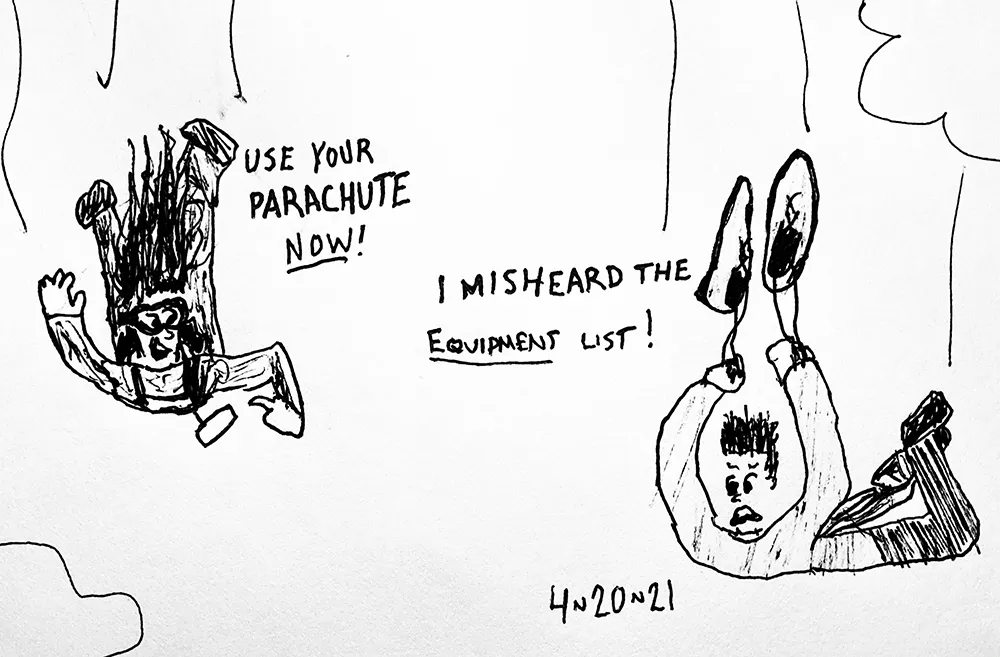 USE YOUR
PARACHUTE
NOW!
I MISHEARD THE
EQUIPMENT LIST!
4~20~21